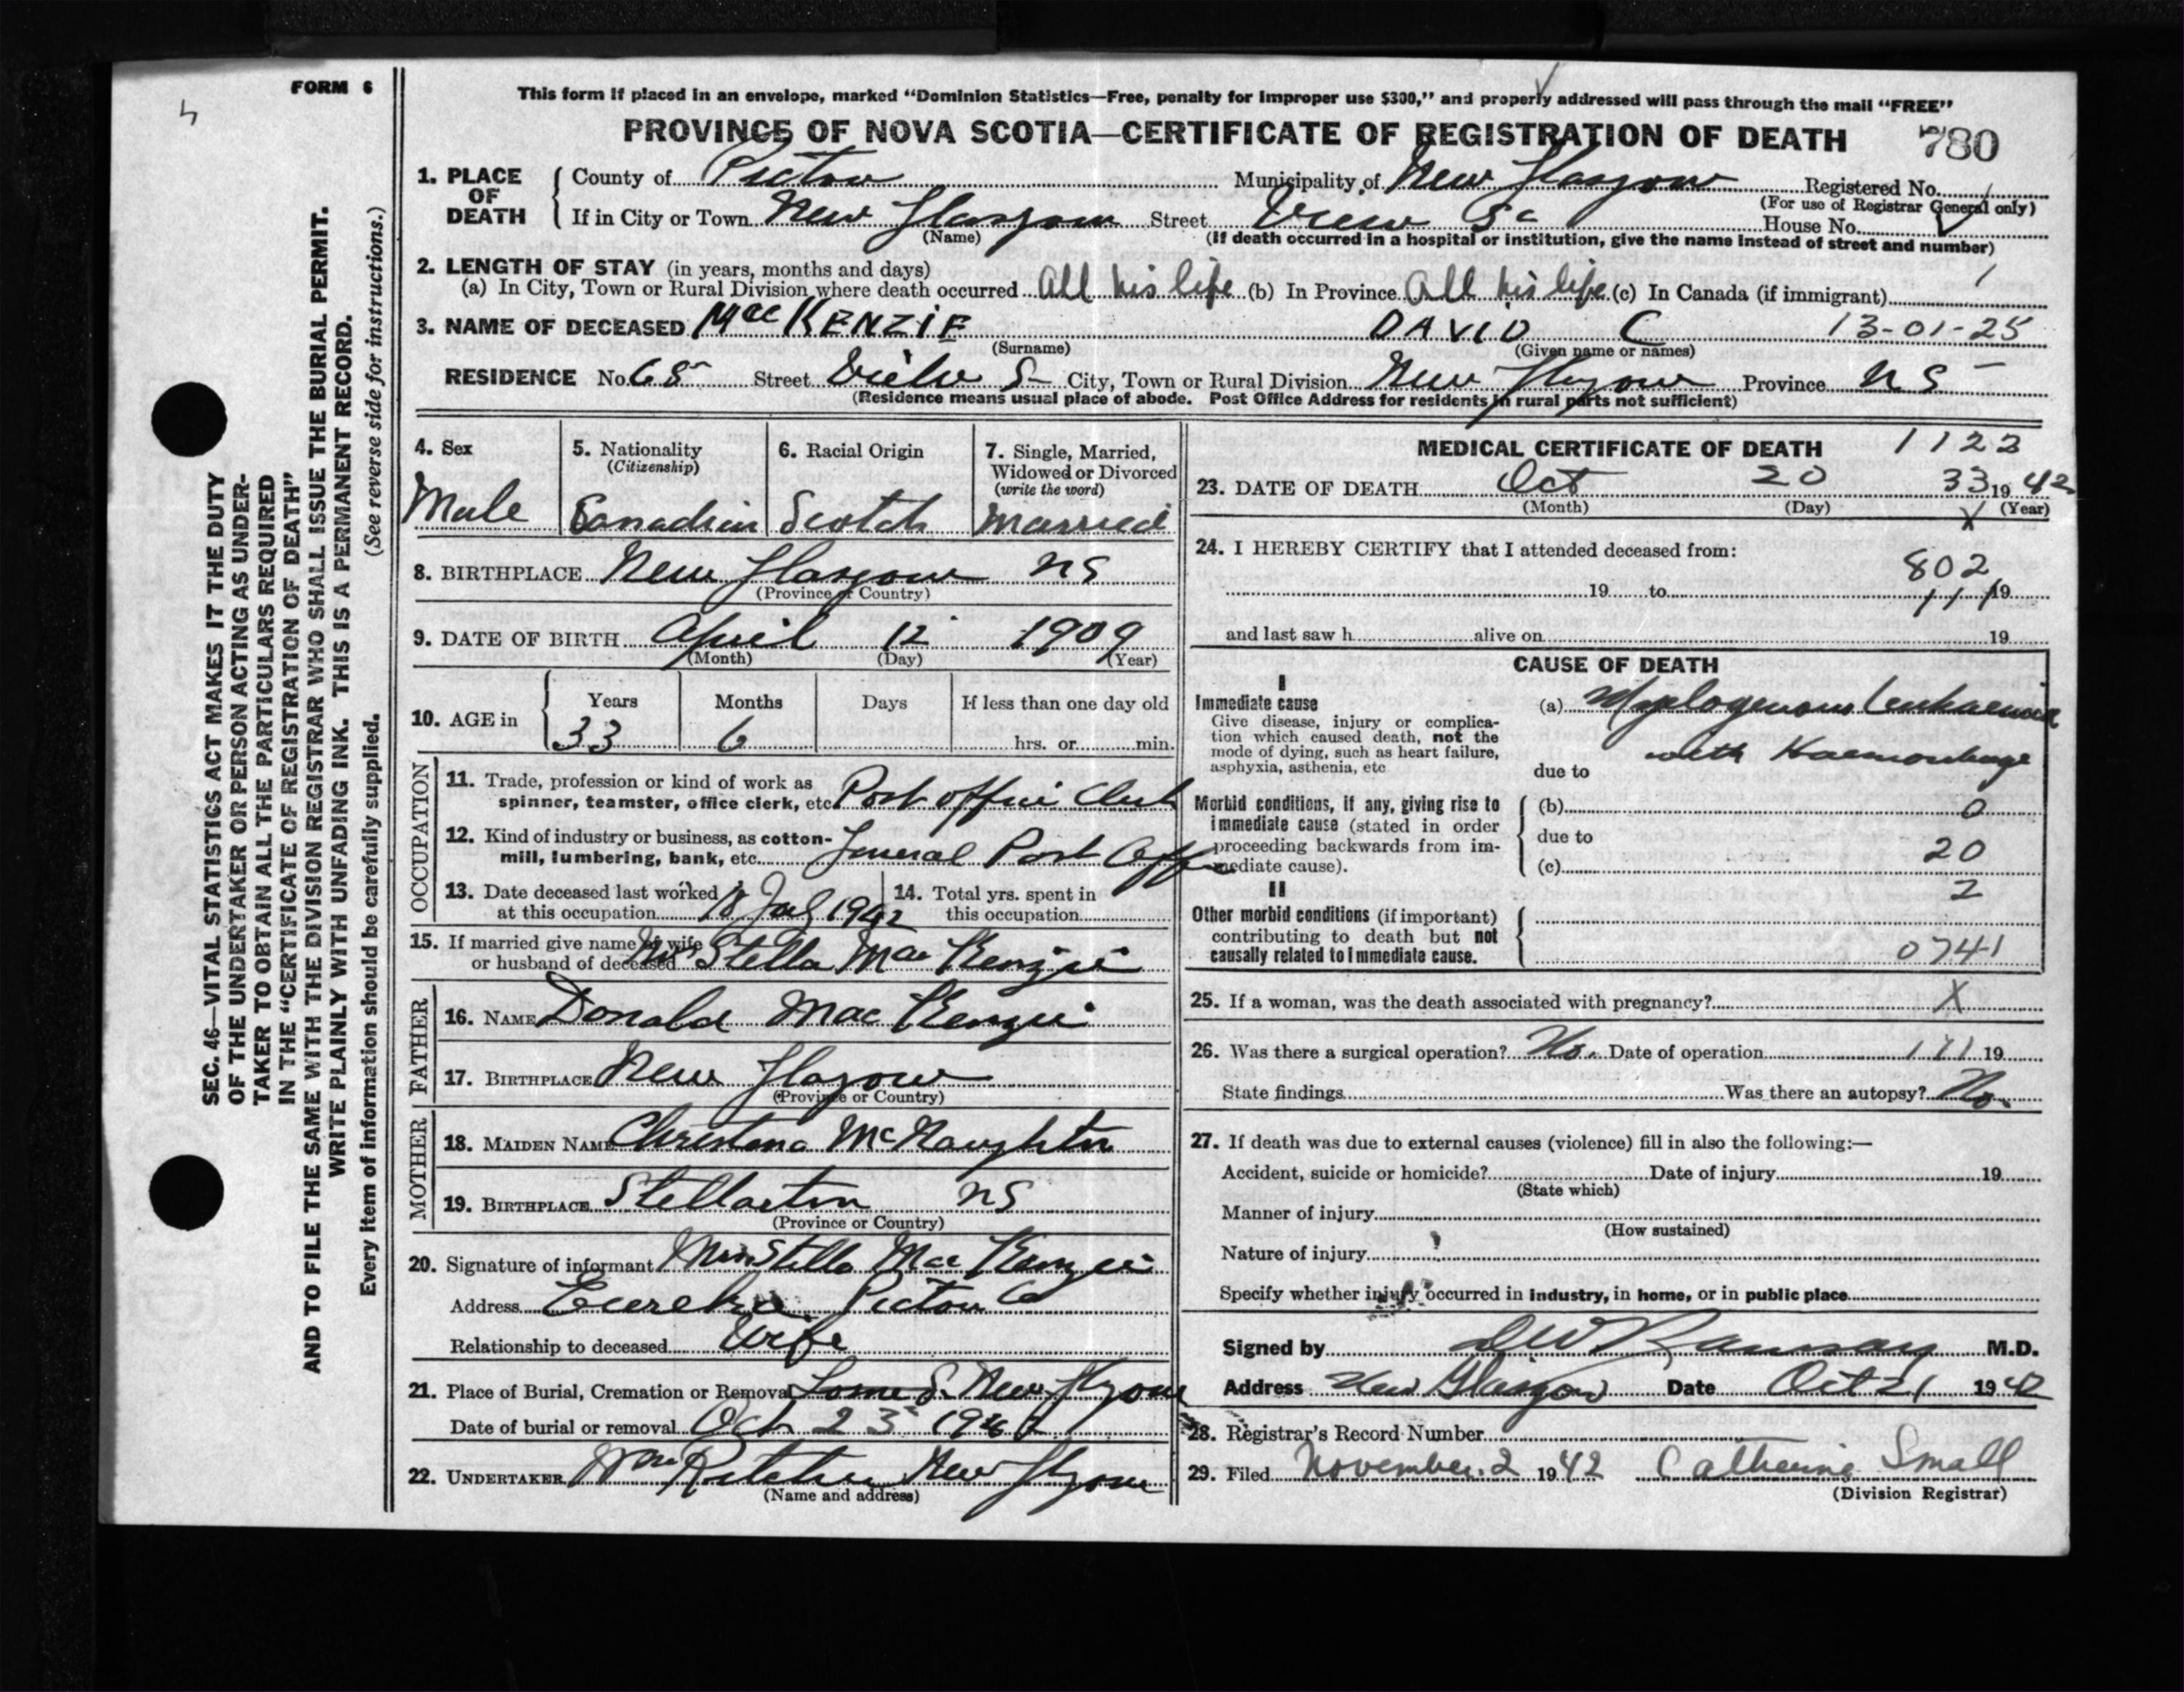 FORM 6
This form if placed in an envelope, marked “Dominion Statistics—Free, penalty for improper use $300,” and properly addressed will pass through the mail “FREE”
PROVINCE OF NOVA SCOTIA—CERTIFICATE OF REGISTRATION OF DEATH 780
1. PLACE OF DEATH
County of Pictou Municipality of New Glasgow Registered No.
(For use of Registrar General only)
If in City or Town New Glasgow Street View St House No.
(Name) (If death occurred in a hospital or institution, give the name instead of street and number)
2. LENGTH OF STAY (in years, months and days)
(a) In City, Town or Rural Division where death occurred All his life (b) In Province All his life (c) In Canada (if immigrant)
3. NAME OF DECEASED MacKENZIE DAVID C 13-01-25
(Surname) (Given name or names)
RESIDENCE No. 68 Street View St City, Town or Rural Division New Glasgow Province NS
(Residence means usual place of abode. Post Office Address for residents in rural parts not sufficient)
4. Sex Male
5. Nationality (Citizenship) Canadian
6. Racial Origin Scotch
7. Single, Married, Widowed or Divorced (write the word) Married
8. BIRTHPLACE New Glasgow NS
(Province or Country)
9. DATE OF BIRTH April 12 1909
(Month) (Day) (Year)
10. AGE in Years Months Days If less than one day old
33 6 hrs. or min.
OCCUPATION
11. Trade, profession or kind of work as
spinner, teamster, office clerk, etc. Post office Clerk
12. Kind of industry or business, as cotton-
mill, lumbering, bank, etc. General Post Off
13. Date deceased last worked
at this occupation 18 July 1942
14. Total yrs. spent in
this occupation
15. If married give name of wife
or husband of deceased Mrs Stella MacKenzie
FATHER
16. NAME Donald MacKenzie
17. BIRTHPLACE New Glasgow
(Province or Country)
MOTHER
18. MAIDEN NAME Christena McNaughton
19. BIRTHPLACE Stellarton NS
(Province or Country)
20. Signature of informant Mrs Stella MacKenzie
Address Eureka Pictou Co
Relationship to deceased Wife
21. Place of Burial, Cremation or Removal Lorne St New Glasgow
Date of burial or removal Oct 23 1942
22. UNDERTAKER Wm Ritchie New Glasgow
(Name and address)
MEDICAL CERTIFICATE OF DEATH 1123
23. DATE OF DEATH Oct 20 33 1942
(Month) (Day) (Year)
X
24. I HEREBY CERTIFY that I attended deceased from:
802
19 to 111 19
and last saw h alive on 19
CAUSE OF DEATH
I
Immediate cause
Give disease, injury or complica-
tion which caused death, not the
mode of dying, such as heart failure,
asphyxia, asthenia, etc
(a) Myelogenous Leukaemia
with Haemorrhage
due to
Morbid conditions, if any, giving rise to
immediate cause (stated in order
proceeding backwards from im-
mediate cause).
(b) 0
due to
20
(c)
2
II
Other morbid conditions (if important)
contributing to death but not
causally related to immediate cause.
0741
25. If a woman, was the death associated with pregnancy? X
26. Was there a surgical operation? No. Date of operation 111 19
State findings Was there an autopsy? No.
27. If death was due to external causes (violence) fill in also the following:—
Accident, suicide or homicide? Date of injury 19
(State which)
Manner of injury
(How sustained)
Nature of injury
Specify whether injury occurred in industry, in home, or in public place
Signed by DW Ramsay M.D.
Address New Glasgow Date Oct 21 1942
28. Registrar's Record Number
29. Filed November 2 1942 Catherine Small
(Division Registrar)
SEC. 46—VITAL STATISTICS ACT MAKES IT THE DUTY
OF THE UNDERTAKER OR PERSON ACTING AS UNDER-
TAKER TO OBTAIN ALL THE PARTICULARS REQUIRED
IN THE “CERTIFICATE OF REGISTRATION OF DEATH”
AND TO FILE THE SAME WITH THE DIVISION REGISTRAR WHO SHALL ISSUE THE BURIAL PERMIT.
WRITE PLAINLY WITH UNFADING INK. THIS IS A PERMANENT RECORD.
Every item of information should be carefully supplied. (See reverse side for instructions.)